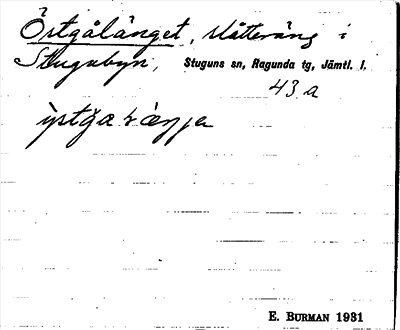 Östgålänget, slåtteräng i
Stugubyn, Stuguns sn, Ragunda tg, Jämtl. l.
43 a
E. BURMAN 1931